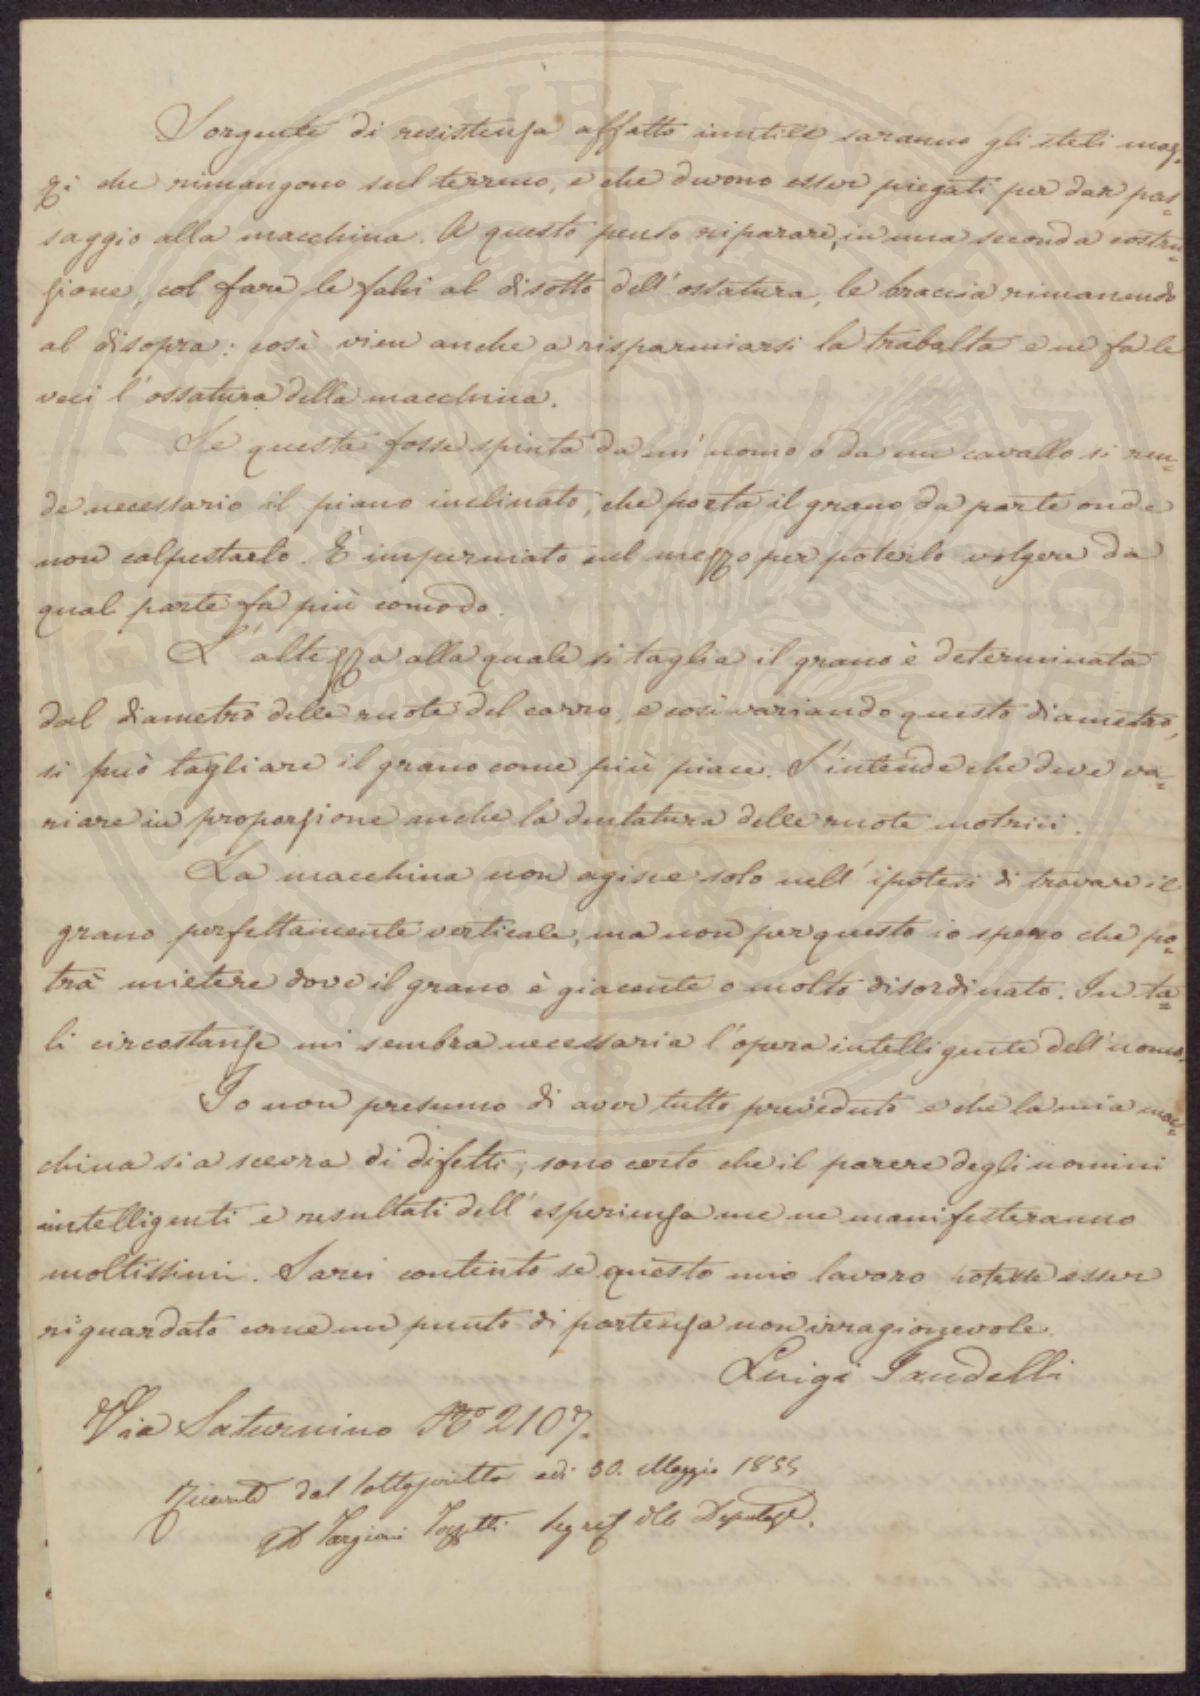 Sorgente di resistenza affatto inutile saranno gli steli moz=
zi che rimangono sul terreno, e che devono esser piegati per dar pas=
saggio alla macchina. A questo penso riparare, in una seconda costru=
zione, col fare le falci al disotto dell'ossatura, le braccia rimanendo
al disopra: così vien anche a risparmiarsi la trabalta e ne fa le
veci l'ossatura della macchina.
Se questa fosse spinta da un'uomo o da un cavallo si ren=
de necessario il piano inclinato, che porta il grano da parte onde
non calpestarlo. È impermiato nel mezzo per poterlo volgere da
qual parte fa più comodo.
L'altezza alla quale si taglia il grano è determinata
dal diametro delle ruote del carro, e così variando questo diametro,
si può tagliare il grano come più piace. S'intende che deve va=
riare in proporzione anche la dentatura delle ruote motrici.
La macchina non agisce solo nell'ipotesi di trovare il
grano perfettamente verticale, ma non per questo io spero che po=
trà mietere dove il grano è giacente o molto disordinato. In ta=
li circostanze mi sembra necessaria l'opera intelligente dell'uomo.
Io non presumo di aver tutto preveduto e che la mia mac=
china sia scevra di difetti; sono certo che il parere degli uomini
intelligenti e resultati dell'esperienza me ne manifesteranno
moltissimi. Sarei contento se questo mio lavoro potesse esser
riguardato come un punto di partenza non irragionevole.
Luigi Jandelli
Via Saturnino No 2107.
Ricevuto dal sottoscritto adì 30. Maggio 1855
Ad Targioni Tozzetti Segret della Deputaze.